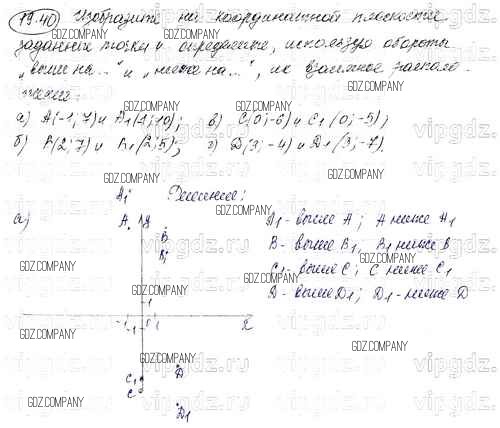 19.40 Изобразите на координатной плоскости
заданные точки и определите, используя обороты
„выше на...“ и „ниже на...“, их взаимное располо-
жение:
а) A(-1; 7) и A1(-1; 10); в) C(0; -6) и C1(0; -5);
б) B(2; 7) и B1(2; 5); г) D(3; -4) и D1(3; -7).
Решение:
а)
A1
A
y
B
B1
1
-1 0 1
-1
x
C1
C
D
D1
A1 - выше A; A ниже A1
B - выше B1, B1 ниже B
C1 - выше C; C ниже C1
D - выше D1; D1 - ниже D
GDZ.COMPANY
vipgdz.ru